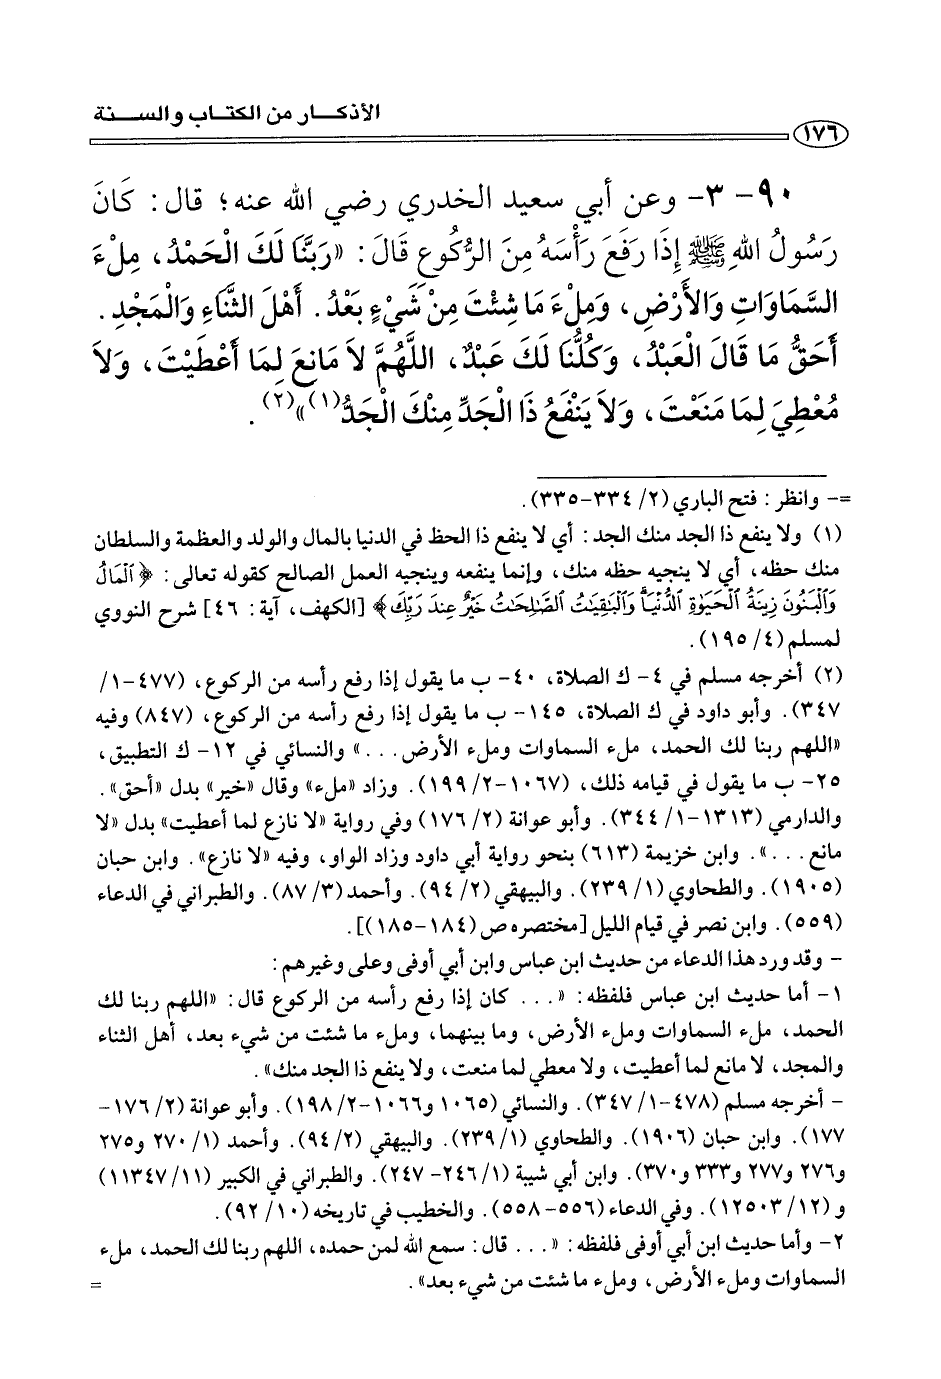 الأذكـــار من الكتـاب والســـنة
١٧٦
٩٠- ٣- وعن أبي سعيد الخدري رضي الله عنه؛ قال: كَانَ
رَسُولُ اللهِ ﷺ إِذَا رَفَعَ رَأْسَهُ مِنَ الرُّكُوعِ قَالَ: «رَبَّنَا لَكَ الْحَمْدُ، مِلْءَ
السَّمَاوَاتِ وَالأَرْضِ، وَمِلْءَ مَا شِئْتَ مِنْ شَيْءٍ بَعْدُ. أَهْلَ الثَّنَاءِ وَالْمَجْدِ.
أَحَقُّ مَا قَالَ الْعَبْدُ، وَكُلُّنَا لَكَ عَبْدٌ، اللَّهُمَّ لاَ مَانِعَ لِمَا أَعْطَيْتَ، وَلاَ
مُعْطِيَ لِمَا مَنَعْتَ، وَلاَ يَنْفَعُ ذَا الْجَدِّ مِنْكَ الْجَدُّ(١)»(٢).
=- وانظر: فتح الباري (٢/ ٣٣٤-٣٣٥).
(١) ولا ينفع ذا الجد منك الجد: أي لا ينفع ذا الحظ في الدنيا بالمال والولد والعظمة والسلطان
منك حظه، أي لا ينجيه حظه منك، وإنما ينفعه وينجيه العمل الصالح كقوله تعالى: ﴿ ٱلْمَالُ
وَٱلْبَنُونَ زِينَةُ ٱلْحَيَوٰةِ ٱلدُّنْيَا وَٱلْبَٰقِيَٰتُ ٱلصَّٰلِحَٰتُ خَيْرٌ عِندَ رَبِّكَ ﴾ [الكهف، آية: ٤٦] شرح النووي
لمسلم (٤/ ١٩٥).
(٢) أخرجه مسلم في ٤- ك الصلاة، ٤٠- ب ما يقول إذا رفع رأسه من الركوع، (٤٧٧-١/
٣٤٧). وأبو داود في ك الصلاة، ١٤٥- ب ما يقول إذا رفع رأسه من الركوع، (٨٤٧) وفيه
«اللهم ربنا لك الحمد، ملء السماوات وملء الأرض...» والنسائي في ١٢- ك التطبيق،
٢٥- ب ما يقول في قيامه ذلك، (١٠٦٧-٢/ ١٩٩). وزاد «ملء» وقال «خير» بدل «أحق».
والدارمي (١٣١٣-١/ ٣٤٤). وأبو عوانة (٢/ ١٧٦) وفي رواية «لا نازع لما أعطيت» بدل «لا
مانع...». وابن خزيمة (٦١٣) بنحو رواية أبي داود وزاد الواو، وفيه «لا نازع». وابن حبان
(١٩٠٥). والطحاوي (١/ ٢٣٩). والبيهقي (٢/ ٩٤). وأحمد (٣/ ٨٧). والطبراني في الدعاء
(٥٥٩). وابن نصر في قيام الليل [مختصره ص (١٨٤-١٨٥)].
- وقد ورد هذا الدعاء من حديث ابن عباس وابن أبي أوفى وعلي وغيرهم:
١- أما حديث ابن عباس فلفظه: «... كان إذا رفع رأسه من الركوع قال: «اللهم ربنا لك
الحمد، ملء السماوات وملء الأرض، وما بينهما، وملء ما شئت من شيء بعد، أهل الثناء
والمجد، لا مانع لما أعطيت، ولا معطي لما منعت، ولا ينفع ذا الجد منك».
- أخرجه مسلم (٤٧٨-١/ ٣٤٧). والنسائي (١٠٦٥ و١٠٦٦-٢/ ١٩٨). وأبو عوانة (٢/ ١٧٦-
١٧٧). وابن حبان (١٩٠٦). والطحاوي (١/ ٢٣٩). والبيهقي (٢/ ٩٤). وأحمد (١/ ٢٧٠ و٢٧٥
و٢٧٦ و٢٧٧ و٣٣٣ و٣٧٠). وابن أبي شيبة (١/ ٢٤٦- ٢٤٧). والطبراني في الكبير (١١/ ١١٣٤٧)
و (١٢/ ١٢٥٠٣). وفي الدعاء (٥٥٦- ٥٥٨). والخطيب في تاريخه (١٠/ ٩٢).
٢- وأما حديث ابن أبي أوفى فلفظه: «... قال: سمع الله لمن حمده، اللهم ربنا لك الحمد، ملء
السماوات وملء الأرض، وملء ما شئت من شيء بعد».
=